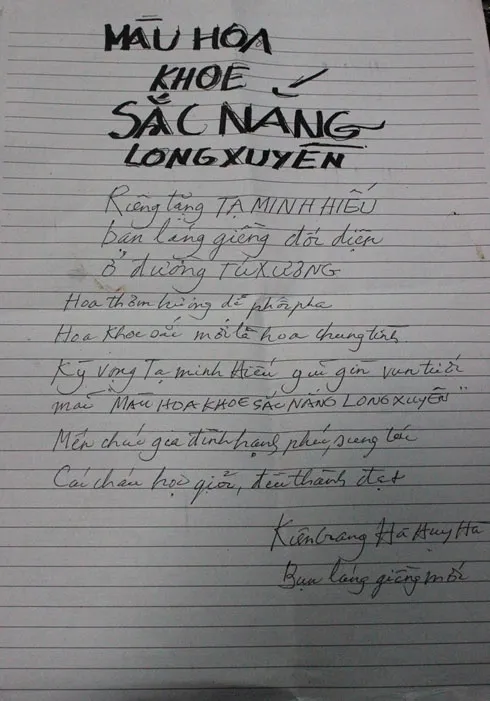 MÀU HOA
KHOE
SẮC NẮNG
LONG XUYÊN
Riêng tặng TẠ MINH HIẾU
bạn láng giềng đối diện
ở đường TÚ XƯƠNG
Hoa thơm hương dễ phôi pha
Hoa khoe sắc mới là hoa chung tình
Kỳ vọng Tạ minh Hiếu giữ gìn vun tưới
mãi "MÀU HOA KHOE SẮC NẮNG LONG XUYÊN"
Mến chúc gia đình hạnh phúc, sung túc
Các cháu học giỏi, đều thành đạt
Kiên Giang Hà Huy Hà
Bạn láng giềng mới